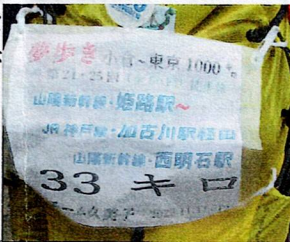 夢歩き 小倉～東京1000㌔
第24・25回
山陽新幹線・姫路駅～
JR神戸線・加古川駅経由
山陽新幹線・西明石駅
33キロ